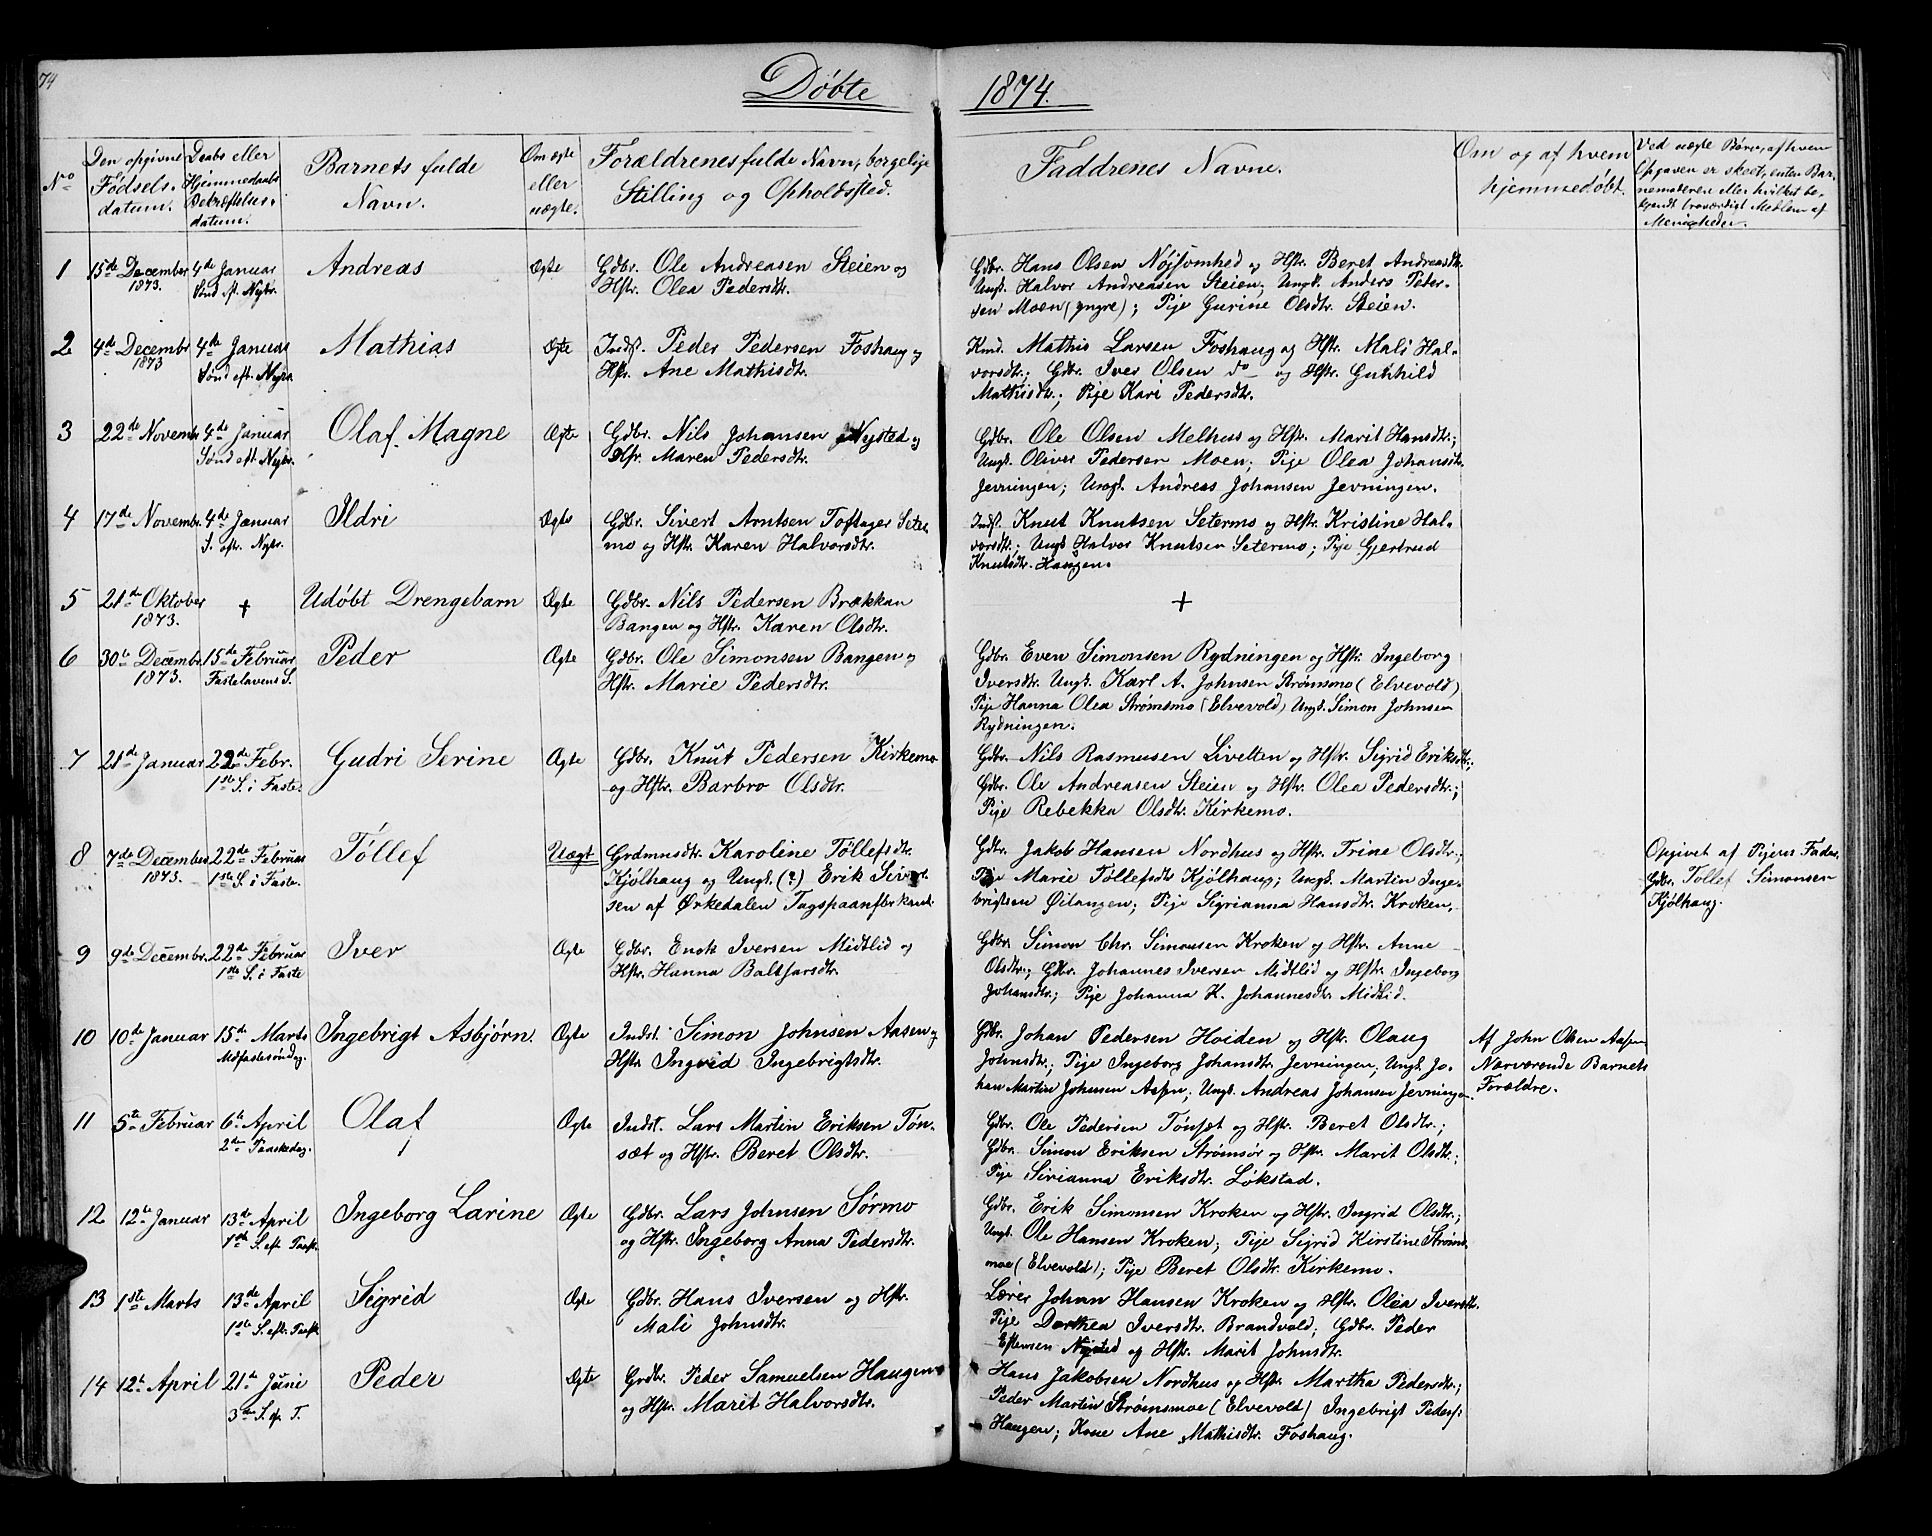 74
Døbte 1874.
No
Den opgivne Fødsels-datum.
Daabs eller Hjemmedaabs Bekræftelses-datum.
Barnets fulde Navn.
Om ægte eller uægte.
Forældrenes fulde Navn, borgelige Stilling og Opholdssted.
Faddrenes Navne.
Om og af hvem hjemmedøbt.
Ved uægte Børn, af hvem Opgaven er skeet, enten Barnemoderen eller hvilket bekjendt troværdigt Medlem af Menigheden.
1 15de December 1873. 4de Januar Sönd eft. Nytr. Andreas Ægte
Gdbr. Ole Andreasen Steien og
Hstr. Olea Pedersdtr.
Gdbr. Hans Olsen Nøjsomhed og Hstr. Beret Andreasdtr.
Ungk. Halvor Andreasen Steien; Ungk. Anders Peter-
sen Moen (yngre); Pije Gurine Olsdtr. Steien.
2 4de Decembr 1873 4de Januar Sönd eft. Nytr. Mathias Ægte
Indst. Peder Pedersen Foshaug og
Hstr. Ane Mathisdtr.
Kmd. Mathis Larsen Foshaug og Hstr. Mali Hal-
vorsdtr.; Gdbr. Iver Olsen do og Hstr. Gunhild
Mathisdtr.; Pije Kari Pedersdtr.
3 22de Novembr 4de Januar Sönd eft. Nytr. Olaf Magne Ægte
Gdbr. Nils Johansen Nysted og
Hstr. Maren Pedersdtr.
Gdbr. Ole Olsen Melhus og Hstr. Marit Hansdtr.;
Ungk. Oliver Pedersen Moen; Pije Olea Johansdtr.
Jevningen; Ungk. Andreas Johansen Jevningen.
4 17de Novembr. 4de Januar S. eftr. Nytr. Ildri Ægte
Gdbr. Sivert Arntsen Toftager Seter
mo og Hstr. Karen Halvorsdtr.
Indst. Knut Knutsen Setermo og Hstr. Kristine Hal-
vorsdtr.; Ungk. Halvor Knutsen Setermo; Pije Gjertrud
Knutsdtr. Haugen.
5 21de Oktober 1873. + Udøbt Drengebarn Ægte
Gdbr. Nils Pedersen Brækkan
Bangen og Hstr. Karen Olsdtr.
+
6 30te Decembr 1873. 15de Februar Fastelavens S. Peder Ægte
Gdbr. Ole Simonsen Bangen og
Hstr. Marie Pedersdtr.
Gdbr. Even Simonsen Rydningen og Hstr. Ingeborg
Iversdtr. Ungk. Karl A. Johnsen Strømsmo (Elvevold)
Pije Hanna Olea Strømsmo (Elvevold) Ungk. Simon Johnsen
Rydningen.
7 21de Januar 22de Febr. 1ste S. i Faste. Gudri Serine Ægte
Gdbr. Knut Pedersen Kirkemo
og Hstr. Barbro Olsdtr.
Gdbr. Nils Rasmusen Livelten og Hstr. Sigrid Eriksdtr.;
Gdbr. Ole Andreasen Steien og Hstr. Olea Pedersdtr.;
Pije Rebekka Olsdtr. Kirkemo.
8 7de December 1873. 22de Februar 1ste S. i Faste. Tøllef Uægt
Grdmnsdtr. Karoline Tøllefsdtr.
Kjølhaug og Ungk. (?) Erik Sivert-
sen af Ørkedalen Tagspaanfbrkant.
Gdbr. Jakob Hansen Nordhus og Hstr. Trine Olsdtr.;
Pije Marie Tøllefsdtr Kjølhaug; Ungk. Martin Inge-
brigtsen Øilangen; Pije Sigrianna Hansdtr. Kroken.
Opgivet af Pigens Fader,
Gdbr. Tøllef Simonsen
Kjølhaug.
9 9de Decembr. 22de Februar 1ste S. i Faste Iver Ægte
Gdbr. Enok Iversen Midtlid og
Hstr. Hanna Baltsarsdtr.
Gdbr. Simon Chr. Simonsen Kroken og Hstr. Anne
Olsdtr.; Gdbr. Johannes Iversen Midtlid og Hstr. Ingeborg
Johansdtr.; Pije Johanna K. Johannesdtr Midtlid.
10 10de Januar 15de Marts Midfastesöndag. Ingebrigt Asbjørn. Ægte
Indst. Simon Johnsen Aasen og
Hstr. Ingrid Ingebrigtsdtr.
Gdbr. Johan Pedersen Hoiden og Hstr. Olaug
Johnsdtr.; Pije Ingeborg Johansdtr. Jevningen; Ungk. Jo-
han Martin Johnsen Aasen; Ungk. Andreas Johansen Jevningen.
Af John Olsen Aasen
Nærværende Barnets
Forældre.
11 5te Februar 6te April 2den Paaskedag. Olaf Ægte
Indst. Lars Martin Eriksen Tøn-
sæt og Hstr. Beret Olsdtr.
Gdbr. Ole Pedersen Tønsæt og Hstr. Beret Olsdtr.;
Gdbr. Simon Eriksen Strømsör og Hstr. Marit Olsdtr.;
Pije Sirianna Eriksdtr. Løkstad.
12 12te Januar 13de April 1ste S. eft Paask. Ingeborg Larine Ægte
Gdbr. Lars Johnsen Sørmo
og Hstr. Ingeborg Anna Pedersdtr.
Gdbr. Erik Simonsen Kroken og Hstr. Ingrid Olsdtr.;
Ungk. Ole Hansen Kroken; Pije Sigrid Kirstine Strøms-
moe (Elvevold); Pije Beret Olsdtr. Kirkemo.
13 1ste Marts 13de April 1ste S. eftr. Paask Sigrid Ægte
Gdbr. Hans Iversen og Hstr.
Mali Johnsdtr.
Lærer Johan Hansen Kroken og Hstr. Olea Iversdtr.
Pije Dorthea Iversdtr. Brandvold; Gdbr. Peder
Estensen Nysted og Hstr. Marit Johnsdtr.
14 12te April 21de Juni 3die S. ef. T. Peder Ægte
Grdbr. Peder Samuelsen Haugen
og Hstr. Marit Halvorsdtr.
Hans Jakobsen Nordhus og Hstr. Martha Pedersdtr.;
Peder Martin Strømsmoe (Elvevold) Ingebrigt Peders:
Haugen; Kone Ane Mathisdtr. Foshaug.